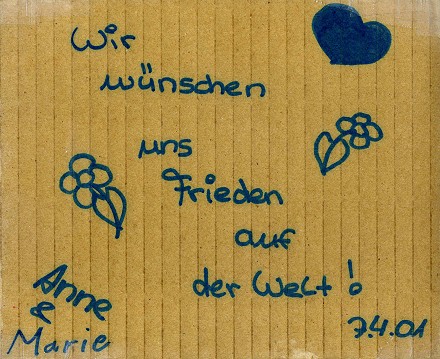 Wir
wünschen
uns
Frieden
auf
der Welt!
Anne
&
Marie
7.4.01